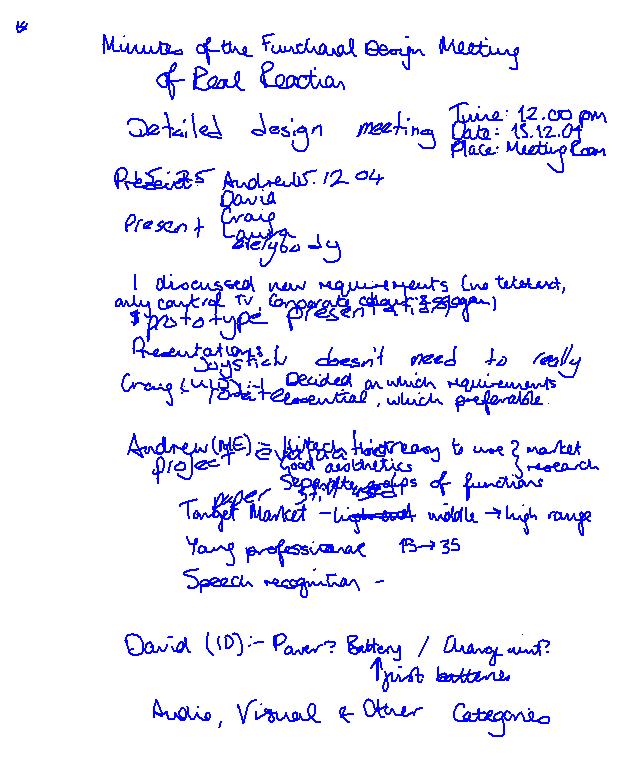 Minutes of the Functional Design Meeting
of Real Reaction
Detailed design meeting
Time: 12.00 pm
Date: 15.12.04
Place: Meeting Room
Present Andrew 15.12 04
David
Present Craig
Laura
everybody
I discussed new requirements (no teletext,
only control TV, corporate colour & slogan)
prototype presentation
Presentations
joystick doesn't need to really
Craig (UI) :- Decided on which requirements
essential, which preferable.
Andrew (ME) :- easy to use } market
project good aesthetics } research
Separate groups of functions
paper
Target Market - middle → high range
Young professional 15 → 35
Speech recognition -
David (ID) :- Power? Battery / Charge unit?
↑ just batteries
Audio, Visual & Other Categories